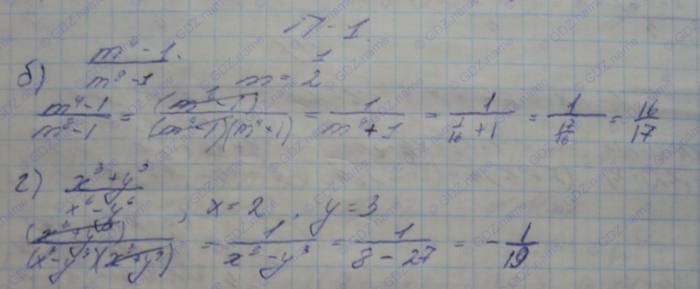 17-1.
б) (m⁴-1)/(m⁸-1) m = 1/2
(m⁴-1)/(m⁸-1) = (m⁴-1)/((m⁴-1)(m⁴+1)) = 1/(m⁴+1) = 1/(1/16 + 1) = 1/(17/16) = 16/17
г) (x³+y³)/(x⁶-y⁶), x=2, y=3
(x³+y³)/((x³-y³)(x³+y³)) = 1/(x³-y³) = 1/(8-27) = -1/19